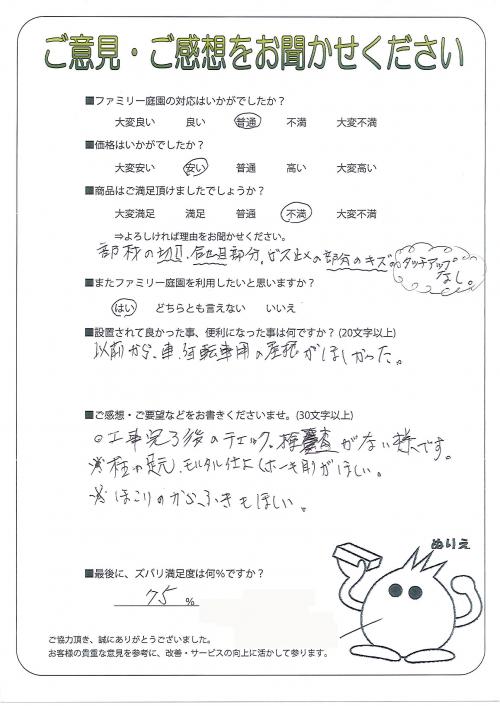 ご意見・ご感想をお聞かせください
■ファミリー庭園の対応はいかがでしたか？
大変良い 良い 普通 不満 大変不満
■価格はいかがでしたか？
大変安い 安い 普通 高い 大変高い
■商品はご満足頂けましたでしょうか？
大変満足 満足 普通 不満 大変不満
⇒よろしければ理由をお聞かせください。
部材の切口、組立部分、ビス止メの部分のキズのタッチアップ
なし。
■またファミリー庭園を利用したいと思いますか？
はい どちらとも言えない いいえ
■設置されて良かった事、便利になった事は何ですか？(20文字以上)
以前から、車、自転車用の屋根がほしかった。
■ご感想・ご要望などをお書きくださいませ。(30文字以上)
○工事完了後のチェック。検査がない様です。
※柱の足元、モルタル仕上(ホーキ目)がほしい。
※ほこりのからふきもほしい。
ぬりえ
■最後に、ズバリ満足度は何％ですか？
75 ％
ご協力頂き、誠にありがとうございました。
お客様の貴重な意見を参考に、改善・サービスの向上に活かして参ります。